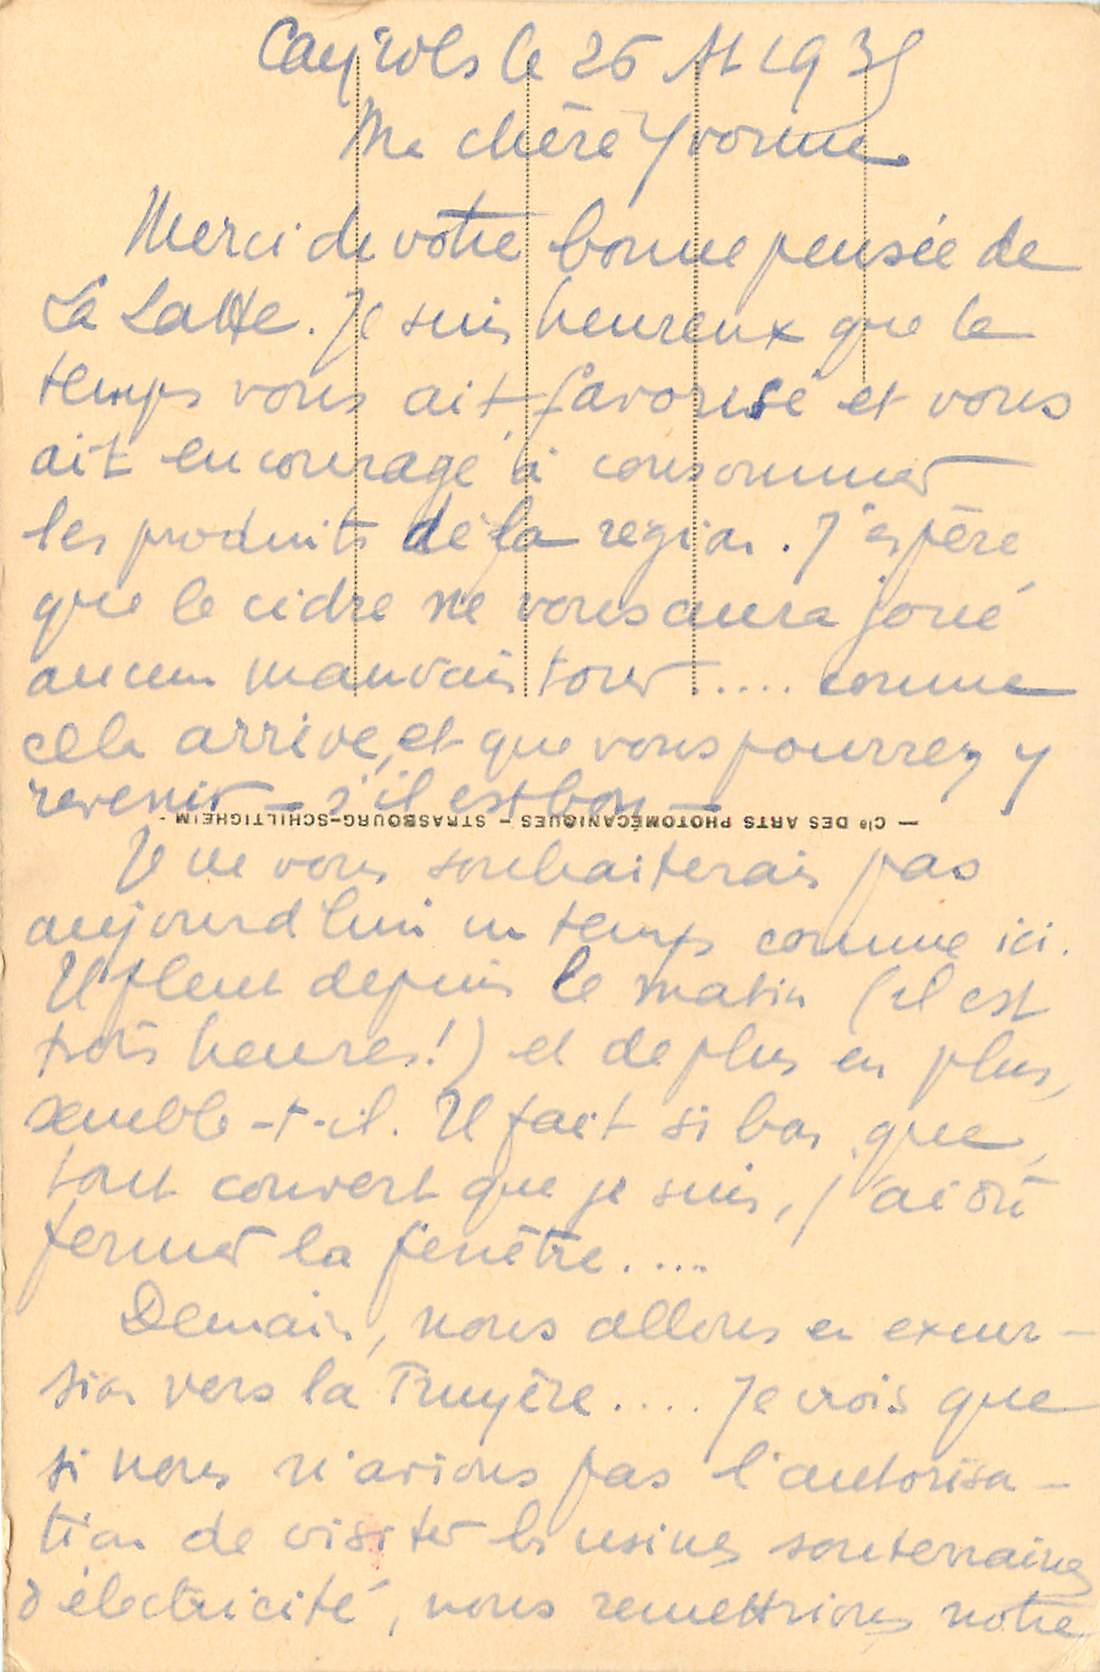 Cayrols le 26 At 1939
Ma chère Yvonne
Merci de votre bonne pensée de
La Latte. Je suis heureux que le
temps vous ait favorisé et vous
ait encouragé à consommer
les produits de la région. J'espère
que le cidre ne vous aura joué
aucun mauvais tour..... comme
cela arrive, et que vous pourrez y
revenir – s'il est bon –
— Cie DES ARTS PHOTOMÉCANIQUES - STRASBOURG-SCHILTIGHEIM -
Je ne vous souhaiterais pas
aujourd'hui un temps comme ici.
Il pleut depuis le matin (il est
trois heures!) et de plus en plus,
semble-t-il. Il fait si bas que,
tout couvert que je suis, j'ai dû
fermer la fenêtre.....
Demain, nous allons en excur-
sion vers la Truyère.... Je crois que
si nous n'avions pas l'autorisa-
tion de visiter les usines souterraines
d'électricité, nous remettrions notre